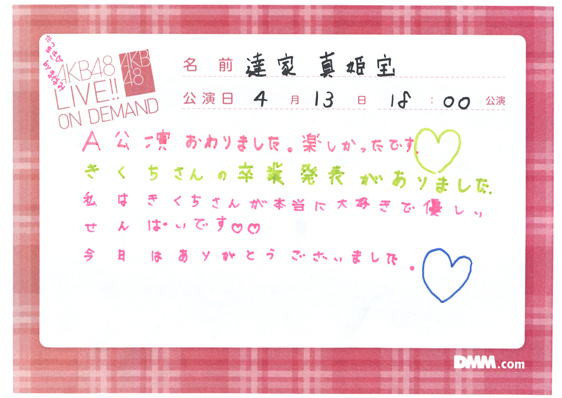 AKB48
LIVE!!
ON DEMAND
AKB
48
名前 達家 真姫宝
公演日 4月13日 18:00公演
A公演おわりました。楽しかったです。
きくちさんの卒業発表がありました。
私はきくちさんが本当に大好きで優しい
せんぱいです♡♡
今日はありがとうございました。
DMM.com